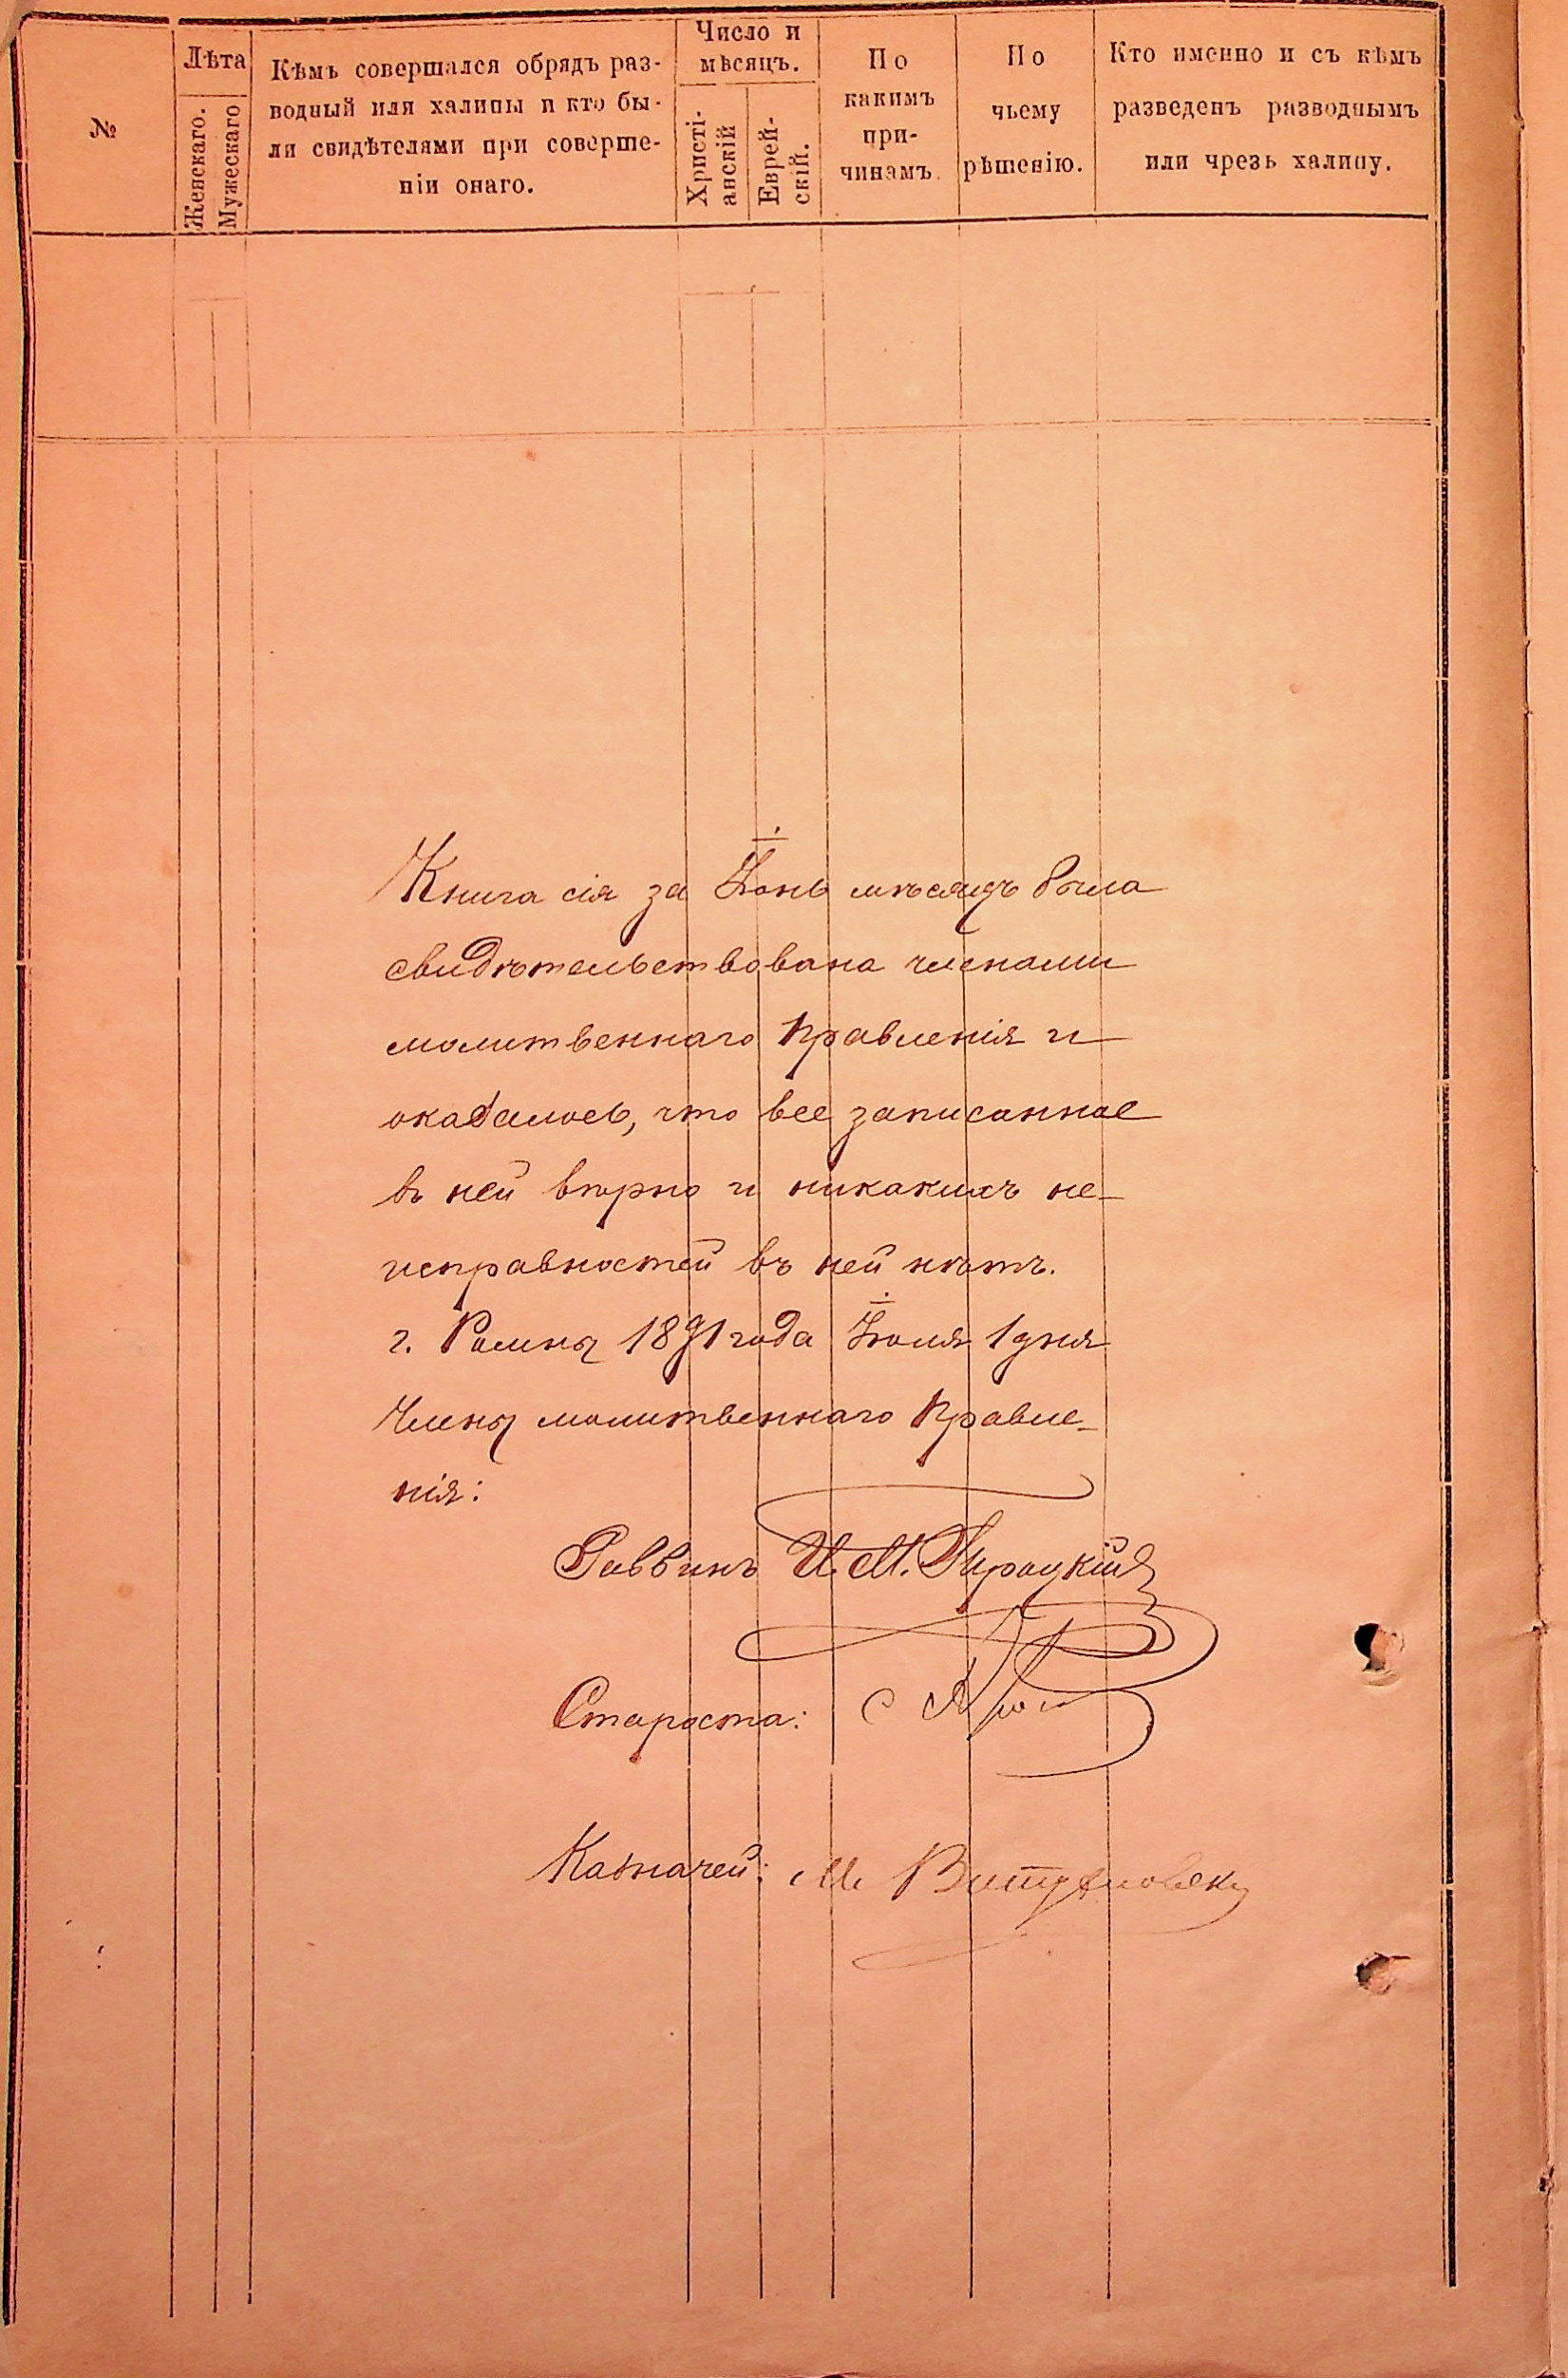 №
Лѣта
Женскаго.
Мужескаго
Кѣмъ совершался обрядъ раз-
водный или халицы и кто бы-
ли свидѣтелями при соверше-
ніи онаго.
Число и
мѣсяцъ.
Христі-
анскій
Еврей-
скій.
По
какимъ
при-
чинамъ.
По
чьему
рѣшенію.
Кто именно и съ кѣмъ
разведенъ разводнымъ
или чрезъ халицу.
Книга сія за Іюнь мѣсяцъ была
свидѣтельствована членами
молитвеннаго правленія и
оказалось, что все записанное
въ ней вѣрно и никакихъ не-
исправностей въ ней нѣтъ.
г. Ромны 1891 года Іюля 1 дня
Члены молитвеннаго правле-
нія:
Раввинъ И. М.
Староста: С
Казначей: М